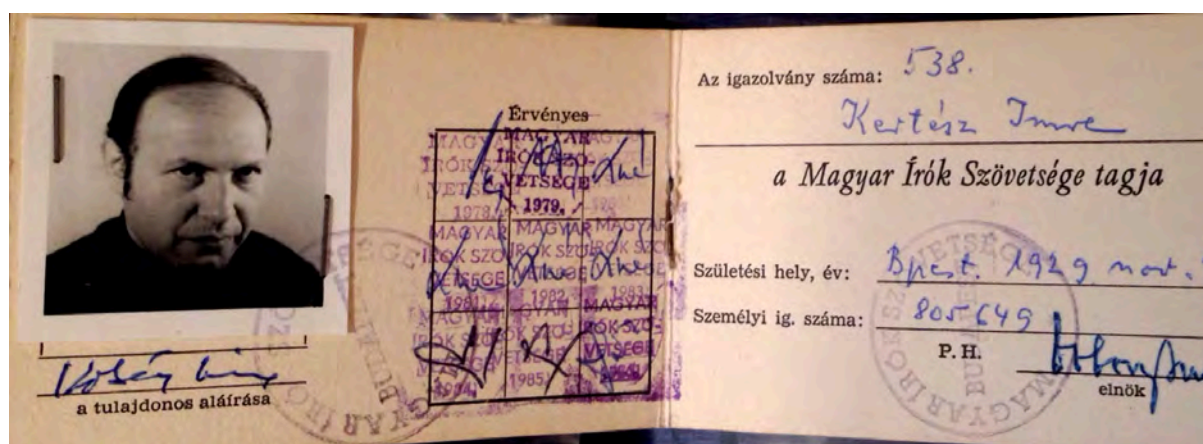 a tulajdonos aláírása
Érvényes
MAGYAR
ÍRÓK SZÖ-
VETSÉGE
1978.
MAGYAR
ÍRÓK SZÖ-
VETSÉGE
1979.
MAGYAR
MAGYAR
ÍRÓK SZÖ
VETSÉGE
1981.
MAGYAR
ÍRÓK SZÖ
VETSÉGE
1982.
MAGYAR
ÍRÓK SZÖ
VETSÉGE
1983.
MAGYAR
ÍRÓK SZÖ
VETSÉGE
1984.
1985.
MAGYAR
ÍRÓK SZÖ-
VETSÉGE
Az igazolvány száma: 538.
Kertész Imre
a Magyar Írók Szövetsége tagja
Születési hely, év: Bpest. 1929 nov.
Személyi ig. száma: 805649
P. H.
elnök
MAGYAR ÍRÓK SZÖVETSÉGE